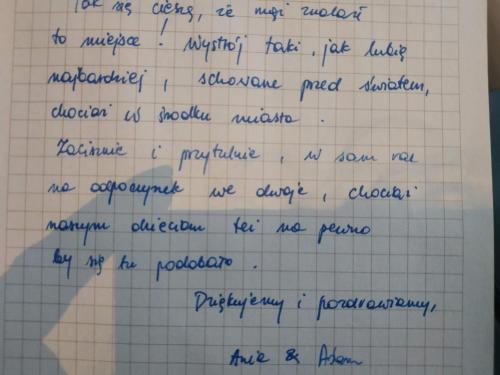 jak się cieszę, że mąż znalazł
to miejsce! Wystrój taki, jak lubię
najbardziej, schowane przed światem,
chociaż w środku miasta.
Zacisznie i przytulnie, w sam raz
na odpoczynek we dwoje, chociaż
naszym dzieciom też na pewno
by się tu podobało.
Dziękujemy i pozdrawiamy,
Ania & Adam